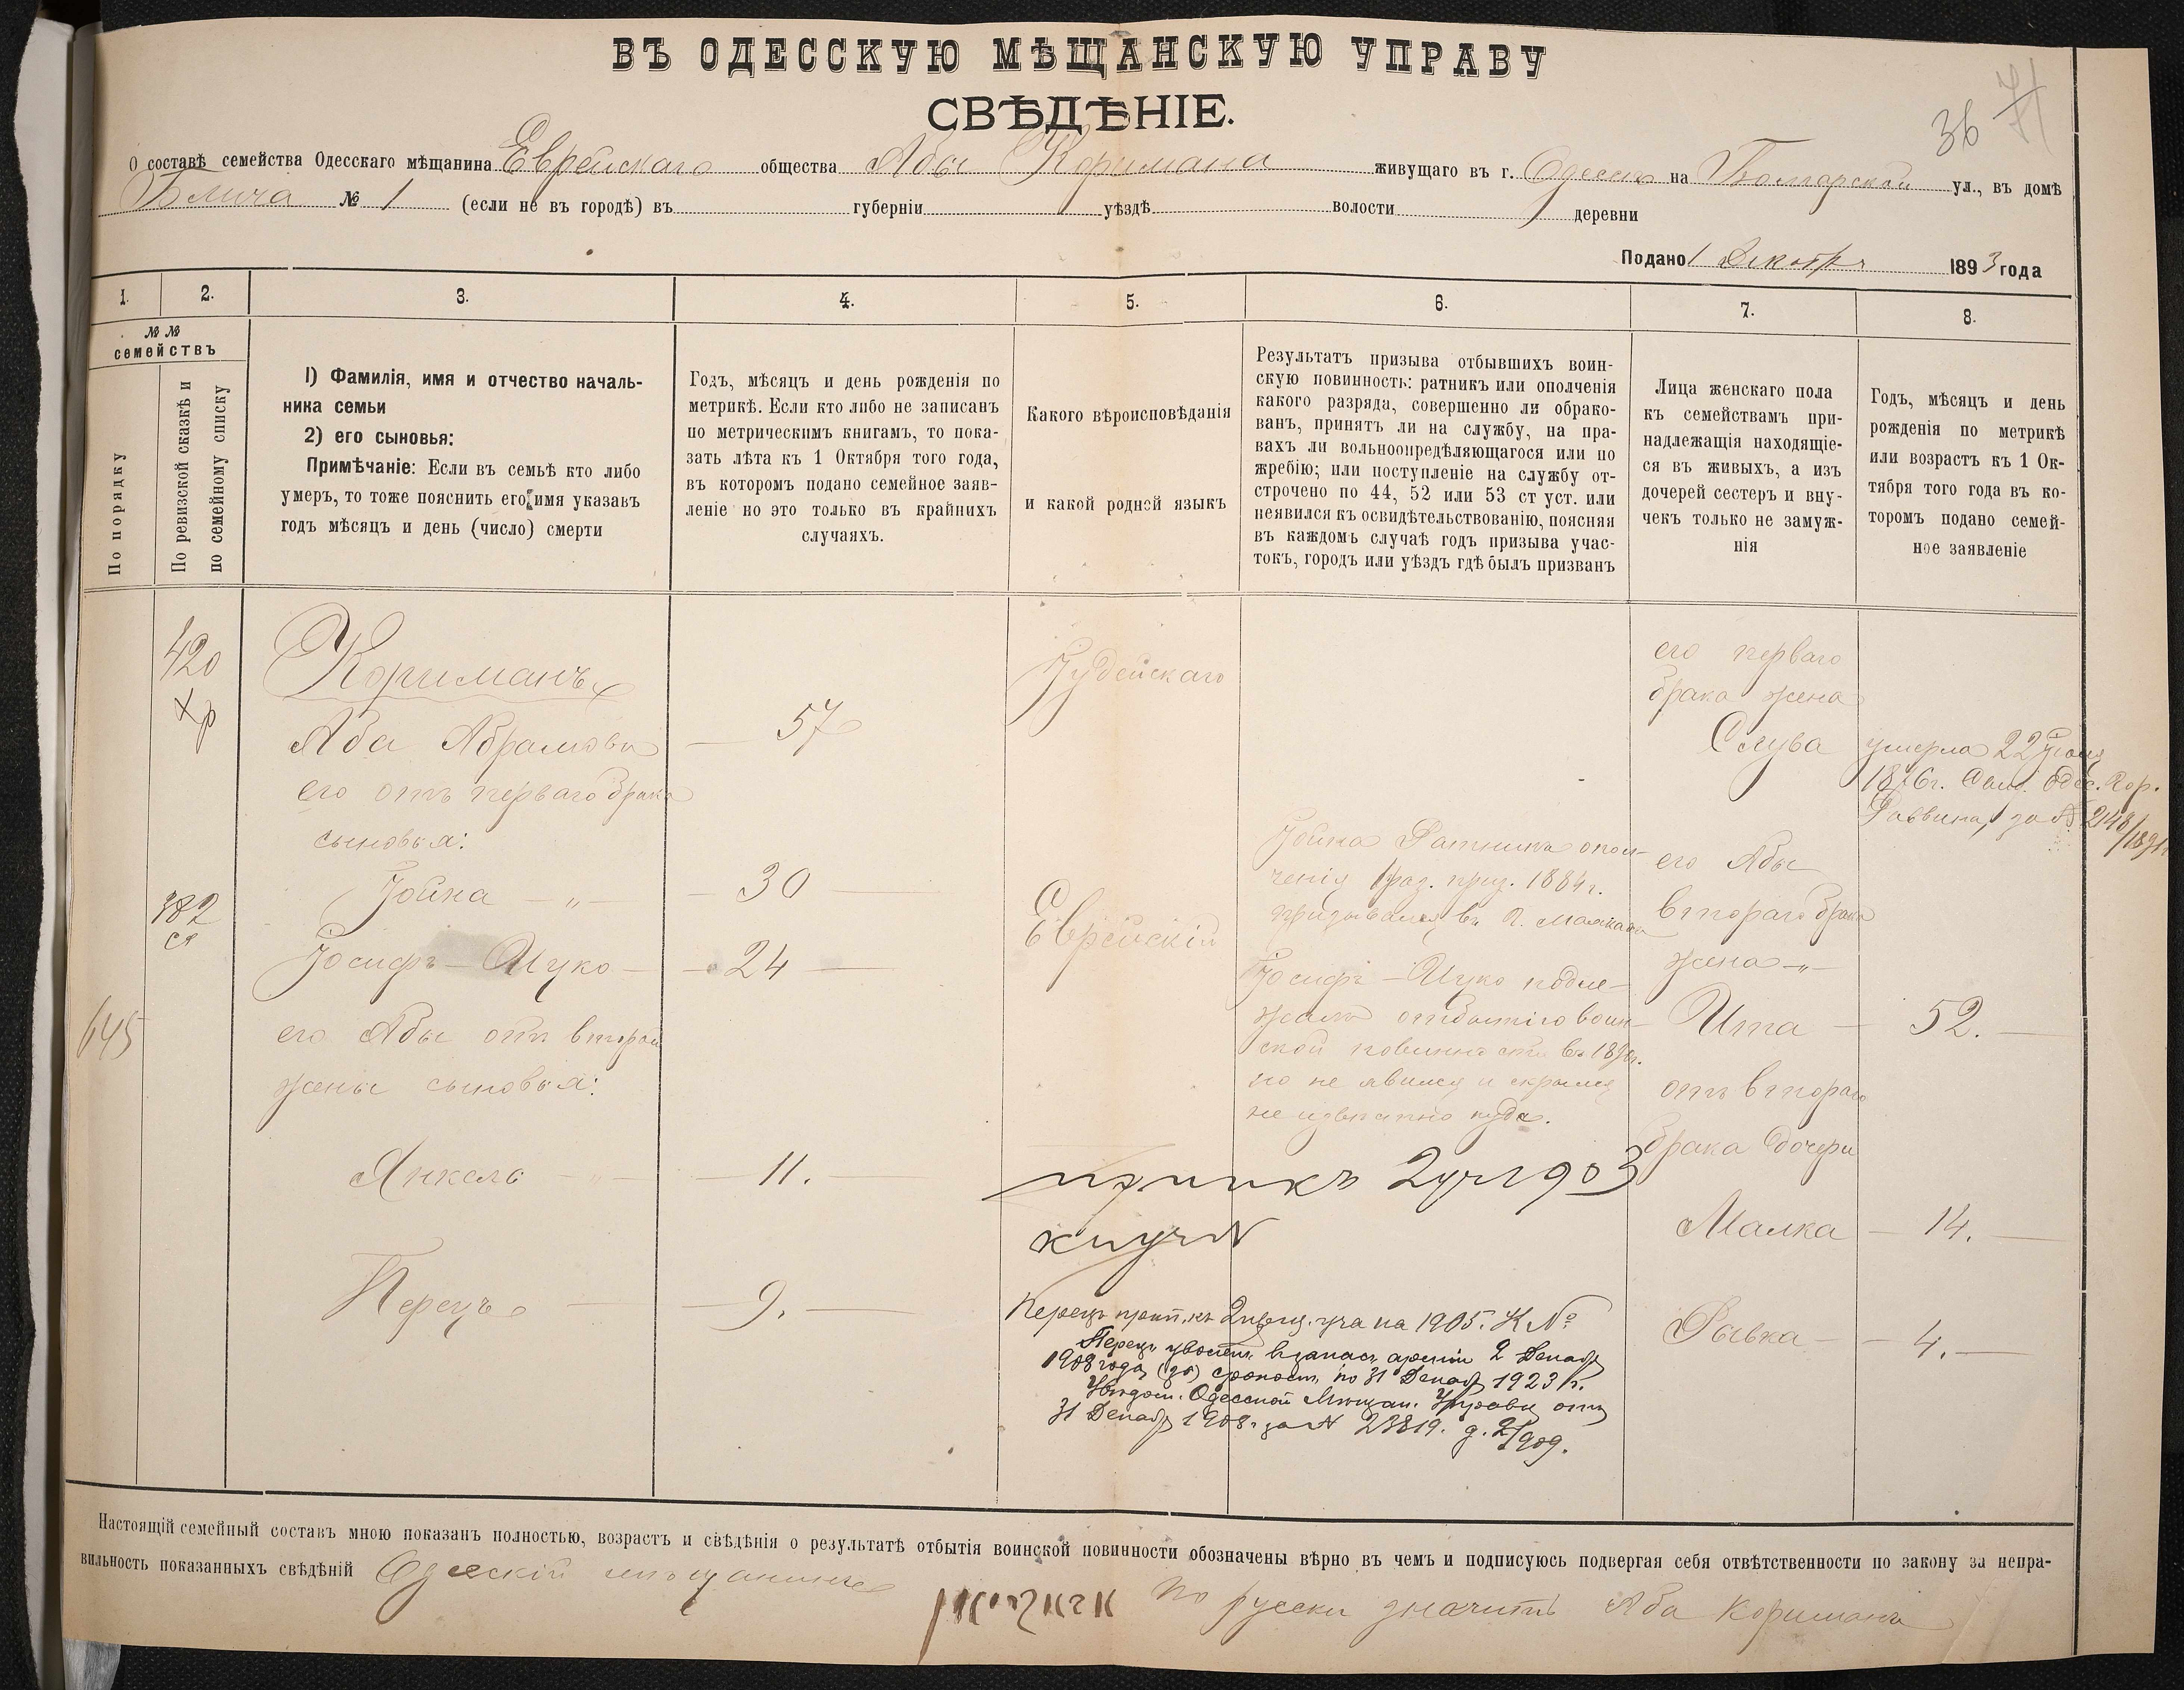 ВЪ ОДЕССКУЮ МѢЩАНСКУЮ УПРАВУ
СВѢДѢНІЕ.
36
О составѣ семейства Одесскаго мѣщанина Еврейскаго общества Абы Коримана живущаго въ г. Одессѣ на ул., въ домѣ
№ 1 (если не въ городѣ) въ губерніи уѣздѣ волости деревни
Подано 1 Декабря 1893 года
1.
2.
3.
4.
5.
6.
7.
8.
№ №
семействъ
По порядку
По ревизской сказкѣ и
по семейному списку
1) Фамилія, имя и отчество началь-
ника семьи
2) его сыновья:
Примѣчаніе: Если въ семьѣ кто либо
умеръ, то тоже пояснить его имя указавъ
годъ мѣсяцъ и день (число) смерти
Годъ, мѣсяцъ и день рожденія по
метрикѣ. Если кто либо не записанъ
по метрическимъ книгамъ, то пока-
зать лѣта къ 1 Октября того года,
въ которомъ подано семейное заяв-
леніе но это только въ крайнихъ
случаяхъ.
Какого вѣроисповѣданія
и какой родной языкъ
Результатъ призыва отбывшихъ воин-
скую повинность: ратникъ или ополченія
какого разряда, совершенно ли обрако-
ванъ, принятъ ли на службу, на пра-
вахъ ли вольноопредѣляющагося или по
жребію; или поступленіе на службу от-
строчено по 44, 52 или 53 ст уст. или
неявился къ освидѣтельствованію, поясняя
въ каждомъ случаѣ годъ призыва учас-
токъ, городъ или уѣздъ гдѣ былъ призванъ
Лица женскаго пола
къ семействамъ при-
надлежащія находящіе-
ся въ живыхъ, а изъ
дочерей сестеръ и вну-
чекъ только не замуж-
нія
Годъ, мѣсяцъ и день
рожденія по метрикѣ
или возрастъ къ 1 Ок-
тября того года въ ко-
торомъ подано семей-
ное заявленіе
420
Хр
382
645
Кориманъ
Аба Абрамовъ — 57
его отъ перваго брака
сыновья:
Іойна — „ — 30
Іосифъ-Ицко — 24
его Абы отъ второй
жены сыновья:
Янкель — „ — 11.
Перецъ — 9.
Іудейскаго
Еврейскій
Іойна Ратникъ опол-
ченія 1 раз. приз. 1884 г.
призывался въ г.
Іосифъ-Ицко подле-
жалъ отбытію воин-
ской повинности въ
но не явился и скрылся
не извѣстно куда.
1903
Перецъ на 1905. К №
Перецъ уволенъ въ запасъ арміи 2 Декаб
1908 года срокомъ по 31 Декаб 1923 г.
Увѣдом. Одесской Мѣщан. Управы отъ
31 Декаб 1908 г. за № 23819. д. 2/909.
его перваго
брака жена
Слува
умерла 22
Раввина, за №
его Абы
втораго брака
жена — „ —
Ита — 52.
отъ втораго
брака дочери
Малка — 14.
Рывка — 4.
Настоящій семейный составъ мною показанъ полностью, возрастъ и свѣдѣнія о результатѣ отбытія воинской повинности обозначены вѣрно въ чемъ и подписуюсь подвергая себя отвѣтственности по закону за непра-
вильность показанныхъ свѣдѣній Одесскій мѣщанинъ
по русски значитъ Аба Кориманъ